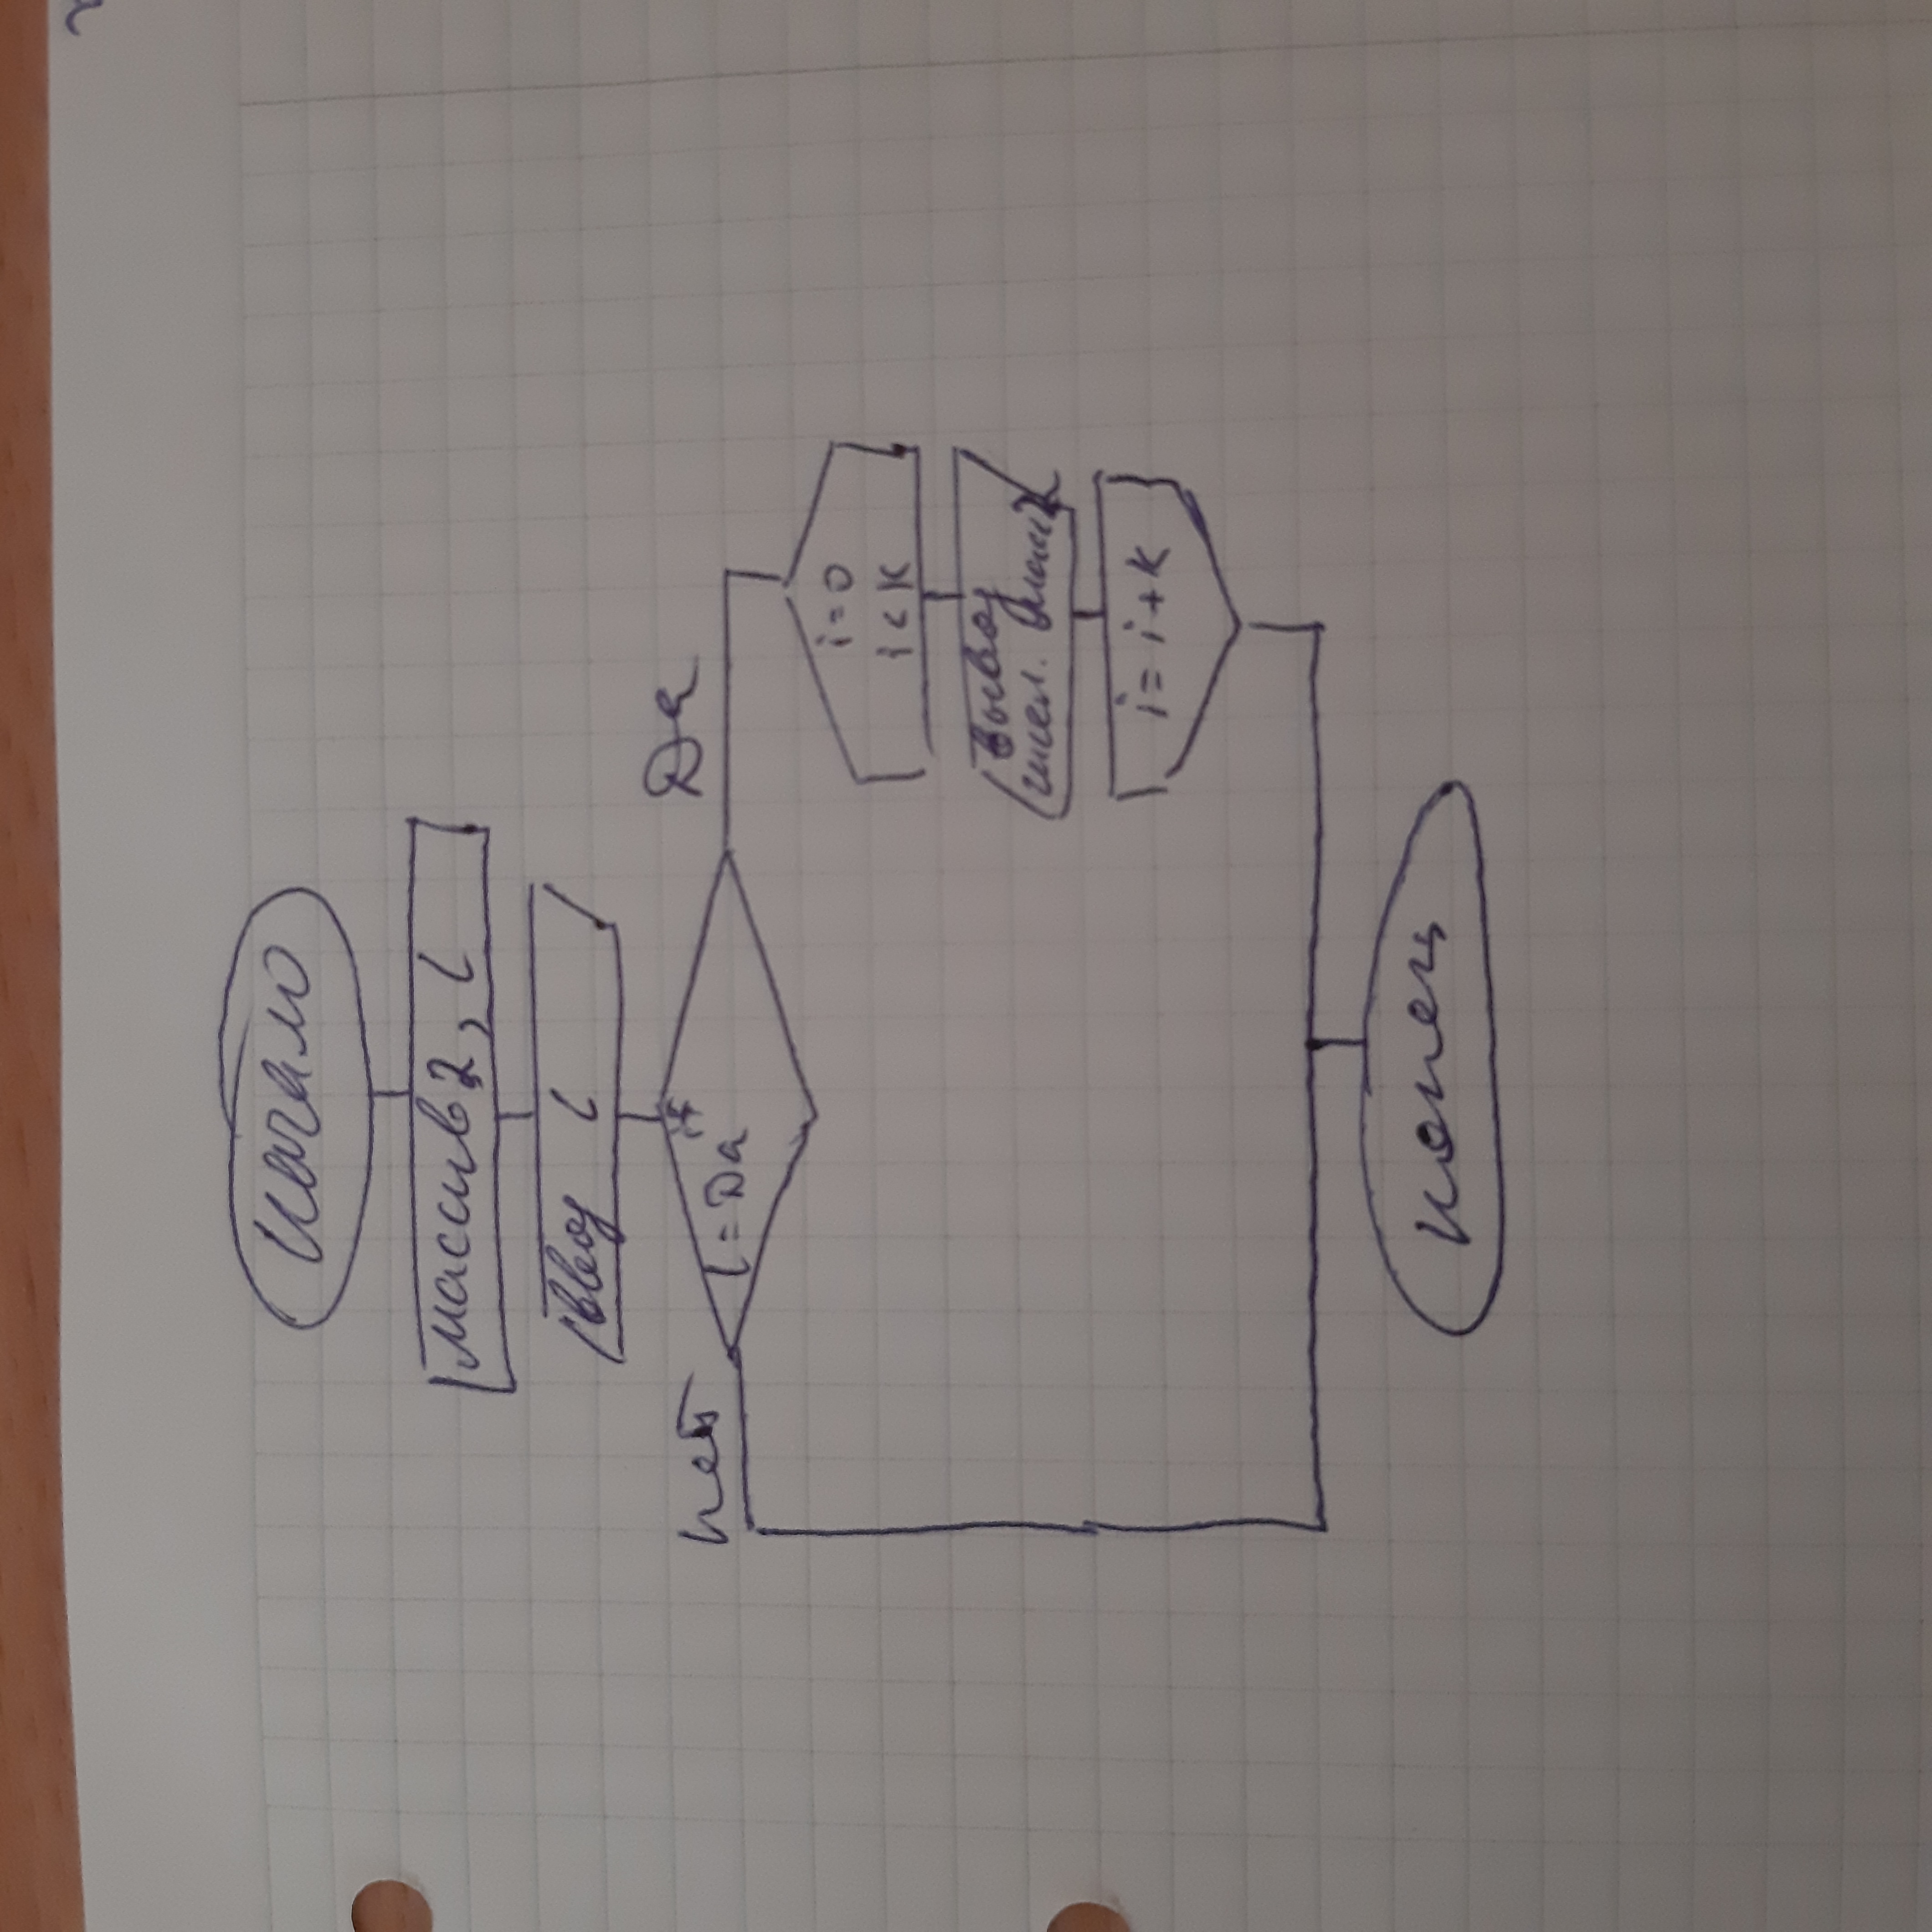 начало
массив2, l
ввод l
if
l = Да
нет
Да
i = 0
i < K
вывод
чисел. 2
i = i + K
конец